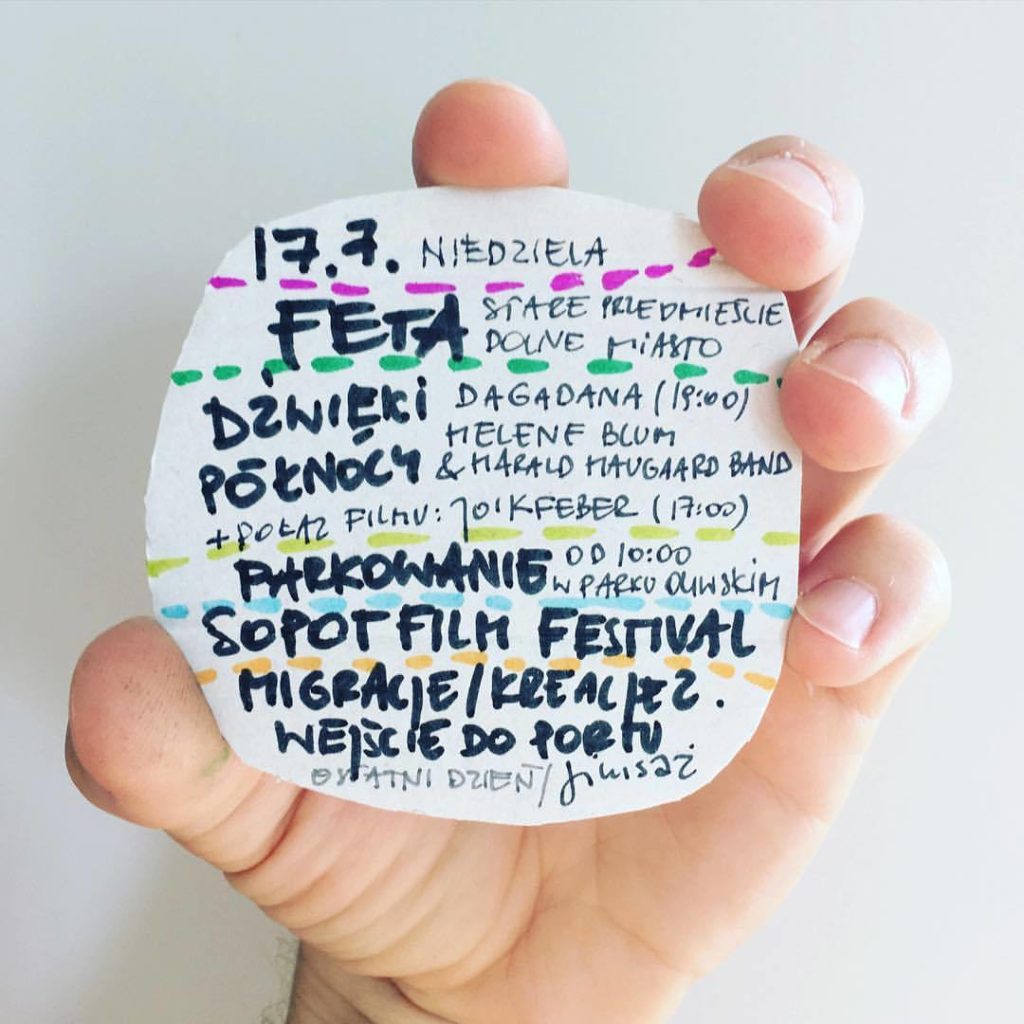 17.7. NIEDZIELA
FETA STARE PRZEDMIEŚCIE
DOLNE MIASTO
DŹWIĘKI DAGADANA (19:00)
PÓŁNOCY HELENE BLUM
& HARALD HAUGAARD BAND
+ POKAZ FILMU: JOIKFEBER (17:00)
PARKOWANIE OD 10:00
W PARKU OLIWSKIM
SOPOT FILM FESTIVAL
MIGRACJE/KREACJE 2.
WEJŚCIE DO PORTU.
OSTATNI DZIEŃ/finisaż